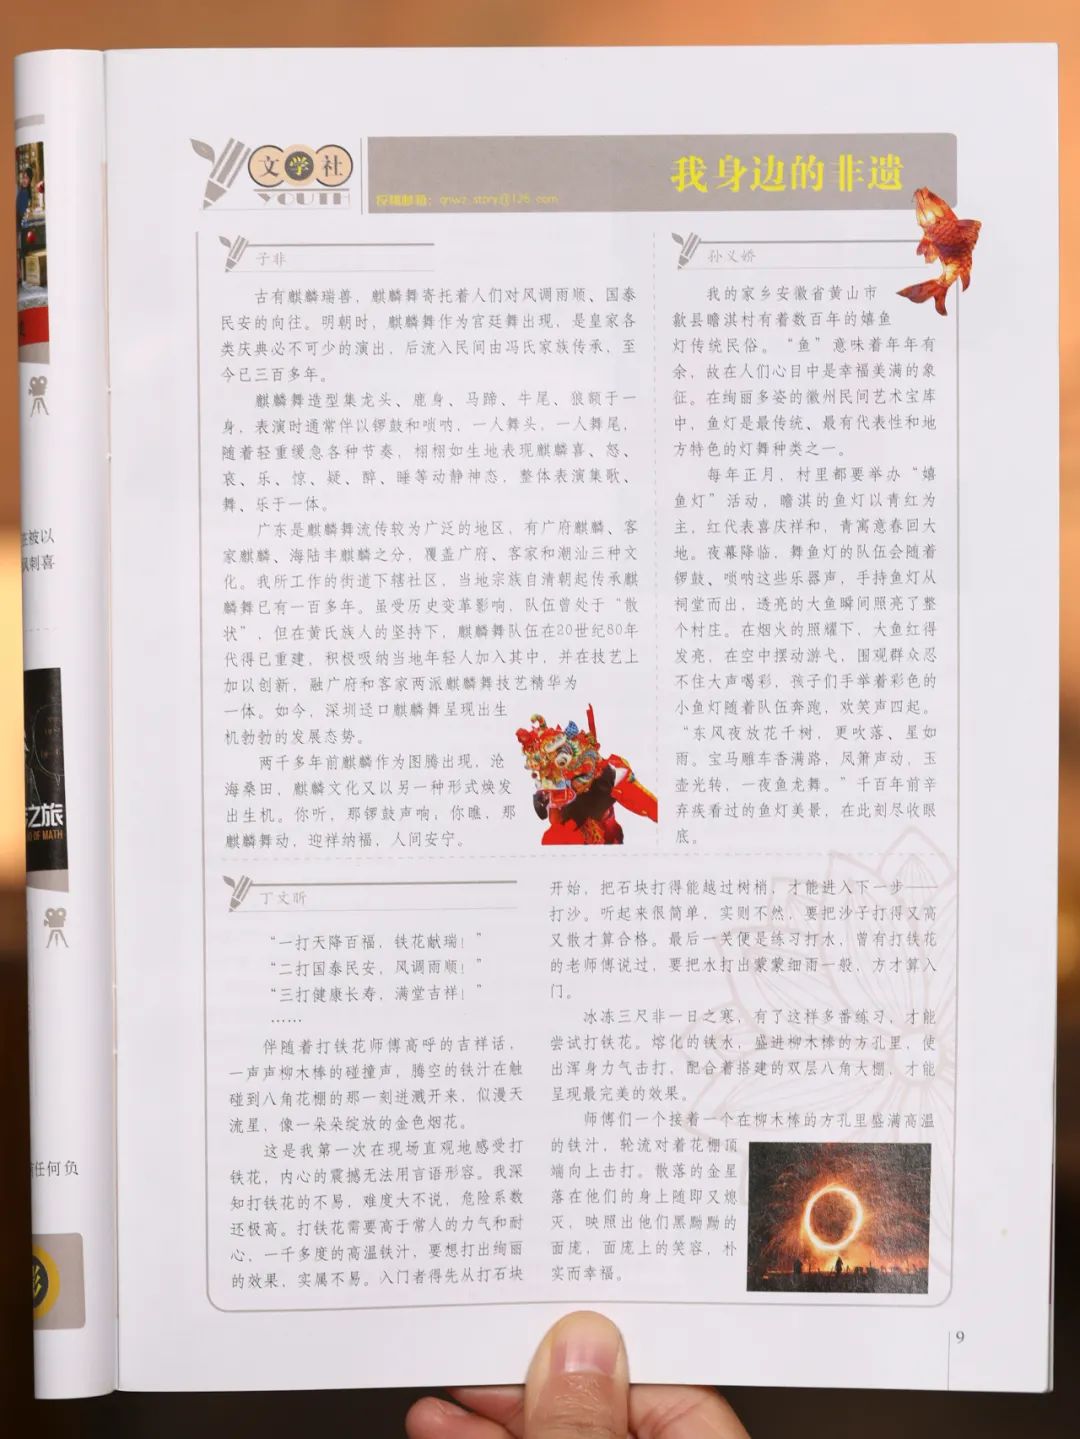 文学社
YOUTH
我身边的非遗
反馈邮箱：qnwz_story@126.com
子非
古有麒麟瑞兽，麒麟舞寄托着人们对风调雨顺、国泰
民安的向往。明朝时，麒麟舞作为宫廷舞出现，是皇家各
类庆典必不可少的演出，后流入民间由冯氏家族传承，至
今已三百多年。
麒麟舞造型集龙头、鹿身、马蹄、牛尾、狼额于一
身，表演时通常伴以锣鼓和唢呐，一人舞头，一人舞尾，
随着轻重缓急各种节奏，栩栩如生地表现麒麟喜、怒、
哀、乐、惊、疑、醉、睡等动静神态，整体表演集歌、
舞、乐于一体。
广东是麒麟舞流传较为广泛的地区，有广府麒麟、客
家麒麟、海陆丰麒麟之分，覆盖广府、客家和潮汕三种文
化。我所工作的街道下辖社区，当地宗族自清朝起传承麒
麟舞已有一百多年。虽受历史变革影响，队伍曾处于“散
状”，但在黄氏族人的坚持下，麒麟舞队伍在20世纪80年
代得已重建，积极吸纳当地年轻人加入其中，并在技艺上
加以创新，融广府和客家两派麒麟舞技艺精华为
一体。如今，深圳迳口麒麟舞呈现出生
机勃勃的发展态势。
两千多年前麒麟作为图腾出现，沧
海桑田，麒麟文化又以另一种形式焕发
出生机。你听，那锣鼓声响；你瞧，那
麒麟舞动，迎祥纳福，人间安宁。
孙义娇
我的家乡安徽省黄山市
歙县瞻淇村有着数百年的嬉鱼
灯传统民俗。“鱼”意味着年年有
余，故在人们心目中是幸福美满的象
征。在绚丽多姿的徽州民间艺术宝库
中，鱼灯是最传统、最有代表性和地
方特色的灯舞种类之一。
每年正月，村里都要举办“嬉
鱼灯”活动，瞻淇的鱼灯以青红为
主，红代表喜庆祥和，青寓意春回大
地。夜幕降临，舞鱼灯的队伍会随着
锣鼓、唢呐这些乐器声，手持鱼灯从
祠堂而出，透亮的大鱼瞬间照亮了整
个村庄。在烟火的照耀下，大鱼红得
发亮，在空中摆动游弋，围观群众忍
不住大声喝彩，孩子们手举着彩色的
小鱼灯随着队伍奔跑，欢笑声四起。
“东风夜放花千树，更吹落、星如
雨。宝马雕车香满路，凤箫声动，玉
壶光转，一夜鱼龙舞。”千百年前辛
弃疾看过的鱼灯美景，在此刻尽收眼
底。
丁文昕
“一打天降百福，铁花献瑞！”
“二打国泰民安，风调雨顺！”
“三打健康长寿，满堂吉祥！”
……
伴随着打铁花师傅高呼的吉祥话，
一声声柳木棒的碰撞声，腾空的铁汁在触
碰到八角花棚的那一刻迸溅开来，似漫天
流星，像一朵朵绽放的金色烟花。
这是我第一次在现场直观地感受打
铁花，内心的震撼无法用言语形容。我深
知打铁花的不易，难度大不说，危险系数
还极高。打铁花需要高于常人的力气和耐
心，一千多度的高温铁汁，要想打出绚丽
的效果，实属不易。入门者得先从打石块
开始，把石块打得能越过树梢，才能进入下一步——
打沙。听起来很简单，实则不然，要把沙子打得又高
又散才算合格。最后一关便是练习打水，曾有打铁花
的老师傅说过，要把水打出蒙蒙细雨一般，方才算入
门。
冰冻三尺非一日之寒，有了这样多番练习，才能
尝试打铁花。熔化的铁水，盛进柳木棒的方孔里，使
出浑身力气击打，配合着搭建的双层八角大棚，才能
呈现最完美的效果。
师傅们一个接着一个在柳木棒的方孔里盛满高温
的铁汁，轮流对着花棚顶
端向上击打。散落的金星
落在他们的身上随即又熄
灭，映照出他们黑黝黝的
面庞，面庞上的笑容，朴
实而幸福。
9
被以
讽刺喜
之旅
OF MATH
任何负
影